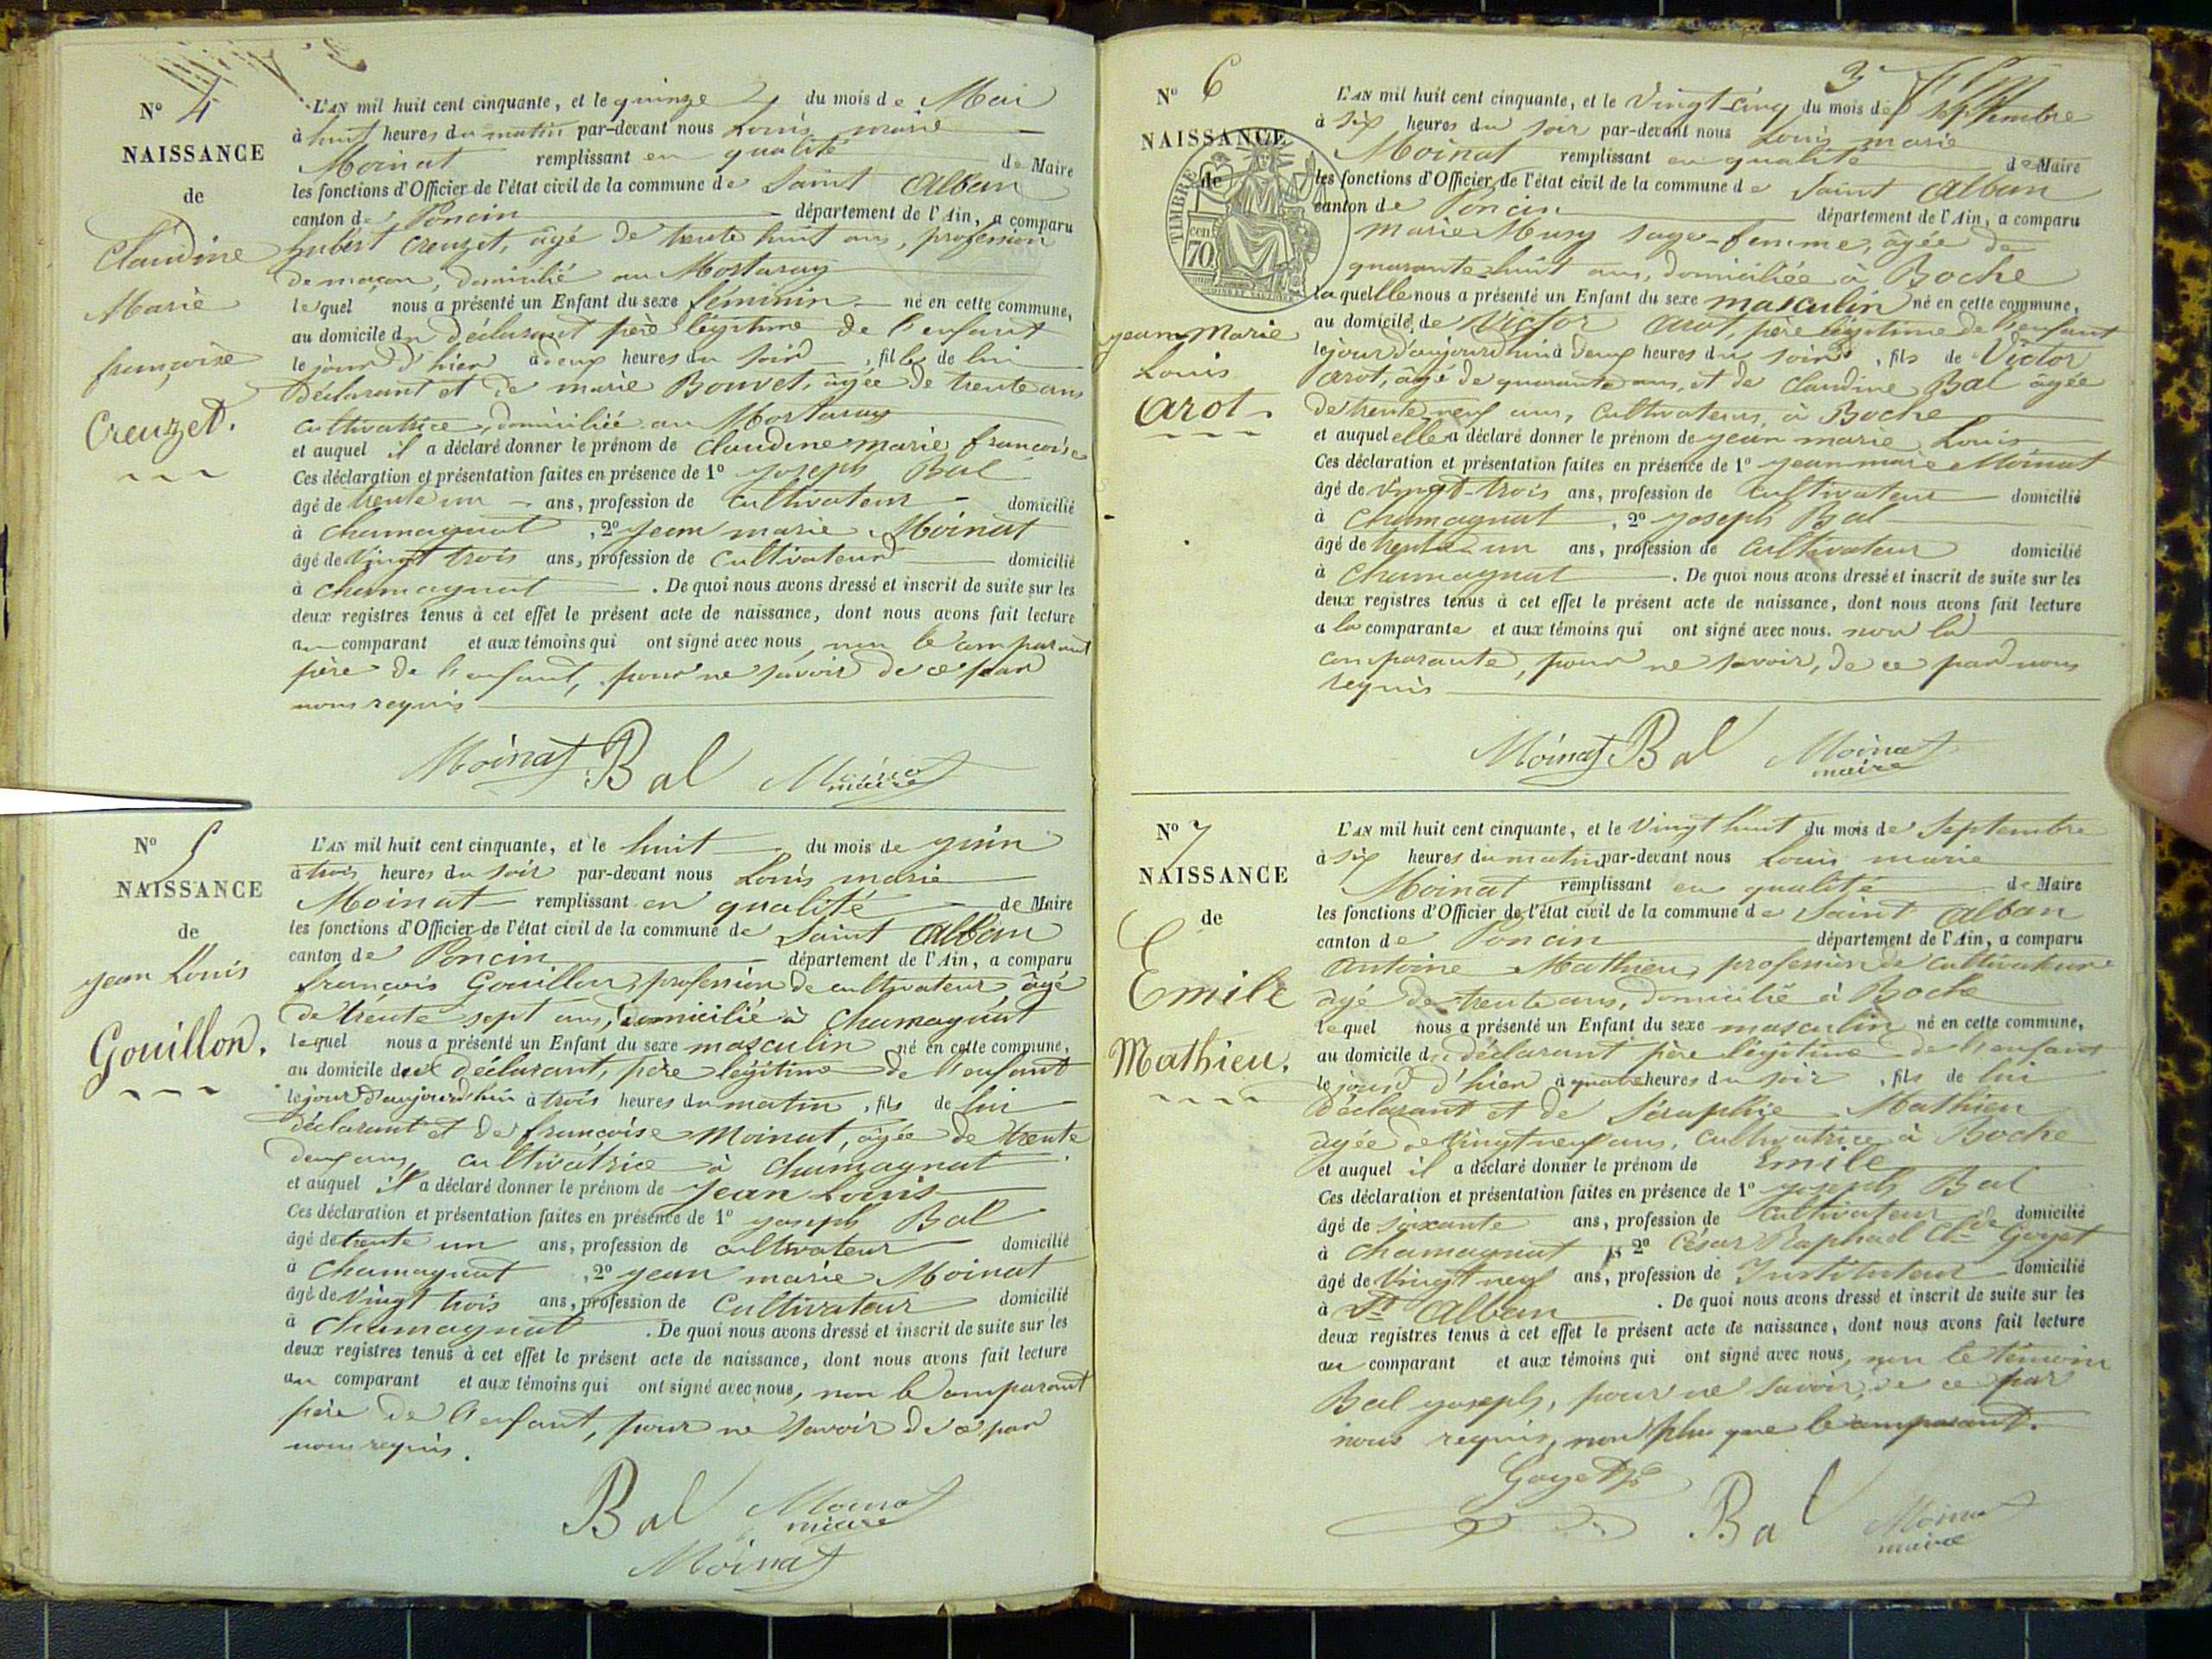 N° 4
NAISSANCE
de
Claudine
Marie
françoise
Creuzet.
L'AN mil huit cent cinquante, et le quinze du mois de Mai
à huit heures du matin par-devant nous Louis marie
Moinat remplissant en qualité de Maire
les fonctions d'Officier de l'état civil de la commune de Saint Alban
canton de Poncin département de l'Ain, a comparu
hubert Creuzet, âgé de trente huit ans, profession
de maçon, domicilié au Mortaray
lequel nous a présenté un Enfant du sexe féminin né en cette commune,
au domicile du déclarant père légitime de l'enfant
le jour d'hier à deux heures du soir, fille de lui
déclarant et de marie Bouvet, âgée de trente ans
cultivatrice, domiciliée au Mortaray
et auquel il a déclaré donner le prénom de Claudine marie françoise
Ces déclaration et présentation faites en présence de 1° joseph Bal
âgé de trente un ans, profession de cultivateur domicilié
à Chamagnat, 2° jean marie Moinat
âgé de vingt trois ans, profession de cultivateur domicilié
à chamagnat. De quoi nous avons dressé et inscrit de suite sur les
deux registres tenus à cet effet le présent acte de naissance, dont nous avons fait lecture
au comparant et aux témoins qui ont signé avec nous, non le comparant
père de l'enfant, pour ne savoir de ce par
nous requis
Moinat Bal Moinat
maire
N° 5
NAISSANCE
de
jean Louis
Gouillon.
L'AN mil huit cent cinquante, et le huit du mois de juin
à trois heures du soir par-devant nous Louis marie
Moinat remplissant en qualité de Maire
les fonctions d'Officier de l'état civil de la commune de Saint Alban
canton de Poncin département de l'Ain, a comparu
françois Gouillon, profession de cultivateur âgé
de trente sept ans, domicilié à Chamagnat
lequel nous a présenté un Enfant du sexe masculin né en cette commune,
au domicile du déclarant, père légitime de l'enfant
le jour d'aujourd'hui à trois heures du matin, fils de lui
déclarant et de françoise Moinat, âgée de trente
deux ans, cultivatrice à chamagnat.
et auquel il a déclaré donner le prénom de Jean Louis
Ces déclaration et présentation faites en présence de 1° joseph Bal
âgé de trente un ans, profession de cultivateur domicilié
à Chamagnat, 2° jean marie Moinat
âgé de vingt trois ans, profession de Cultivateur domicilié
à Chamagnat. De quoi nous avons dressé et inscrit de suite sur les
deux registres tenus à cet effet le présent acte de naissance, dont nous avons fait lecture
au comparant et aux témoins qui ont signé avec nous, non le comparant
père de l'enfant, pour ne savoir de ce par
nous requis.
Bal Moinat
maire
Moinat
3
N° 6
NAISSANCE
de
TIMBRE
70
jean Marie
Louis
Arot.
L'AN mil huit cent cinquante, et le Vingt-cinq du mois de Septembre
à six heures du soir par-devant nous Louis marie
Moinat remplissant en qualité de Maire
les fonctions d'Officier de l'état civil de la commune de Saint Alban
canton de Poncin département de l'Ain, a comparu
marie Musy sage-femme, âgée de
quarante-huit ans, domiciliée à Boche
laquelle nous a présenté un Enfant du sexe masculin né en cette commune,
au domicile de Victor Arot, père légitime de l'enfant
le jour d'aujourd'hui à deux heures du soir, fils de Victor
Arot, âgé de quarante ans, et de Claudine Bal âgée
de trente neuf ans, Cultivateurs à Boche
et auquel elle a déclaré donner le prénom de jean marie Louis
Ces déclaration et présentation faites en présence de 1° jean marie Moinat
âgé de vingt-trois ans, profession de Cultivateur domicilié
à Chamagnat, 2° Joseph Bal
âgé de trente-un ans, profession de Cultivateur domicilié
à Chamagnat. De quoi nous avons dressé et inscrit de suite sur les
deux registres tenus à cet effet le présent acte de naissance, dont nous avons fait lecture
a la comparante et aux témoins qui ont signé avec nous. non la
comparante, pour ne savoir, de ce par nous
requis
Moinat Bal Moinat
maire
N° 7
NAISSANCE
de
Emile
Mathieu.
L'AN mil huit cent cinquante, et le Vingt huit du mois de Septembre
à six heures du matin par-devant nous Louis marie
Moinat remplissant en qualité de Maire
les fonctions d'Officier de l'état civil de la commune de Saint Alban
canton de Poncin département de l'Ain, a comparu
Antoine Mathieu, profession de Cultivateur
âgé de trente ans, domicilié à Boche
lequel nous a présenté un Enfant du sexe masculin né en cette commune,
au domicile du déclarant père légitime de l'enfant
le jour d'hier à quatre heures du soir, fils de lui
déclarant et de Séraphie Mathieu
âgée de vingt neuf ans, Cultivatrice à Boche
et auquel il a déclaré donner le prénom de Emile
Ces déclaration et présentation faites en présence de 1° joseph Bal
âgé de soixante ans, profession de Cultivateur domicilié
à Chamagnat 2° César Raphael Goyet
âgé de Vingt neuf ans, profession de Instituteur domicilié
à St Alban. De quoi nous avons dressé et inscrit de suite sur les
deux registres tenus à cet effet le présent acte de naissance, dont nous avons fait lecture
au comparant et aux témoins qui ont signé avec nous, non le témoin
Bal joseph, pour ne savoir, de ce par
nous requis, non plus que le comparant.
Goyet
Bal Moinat
maire